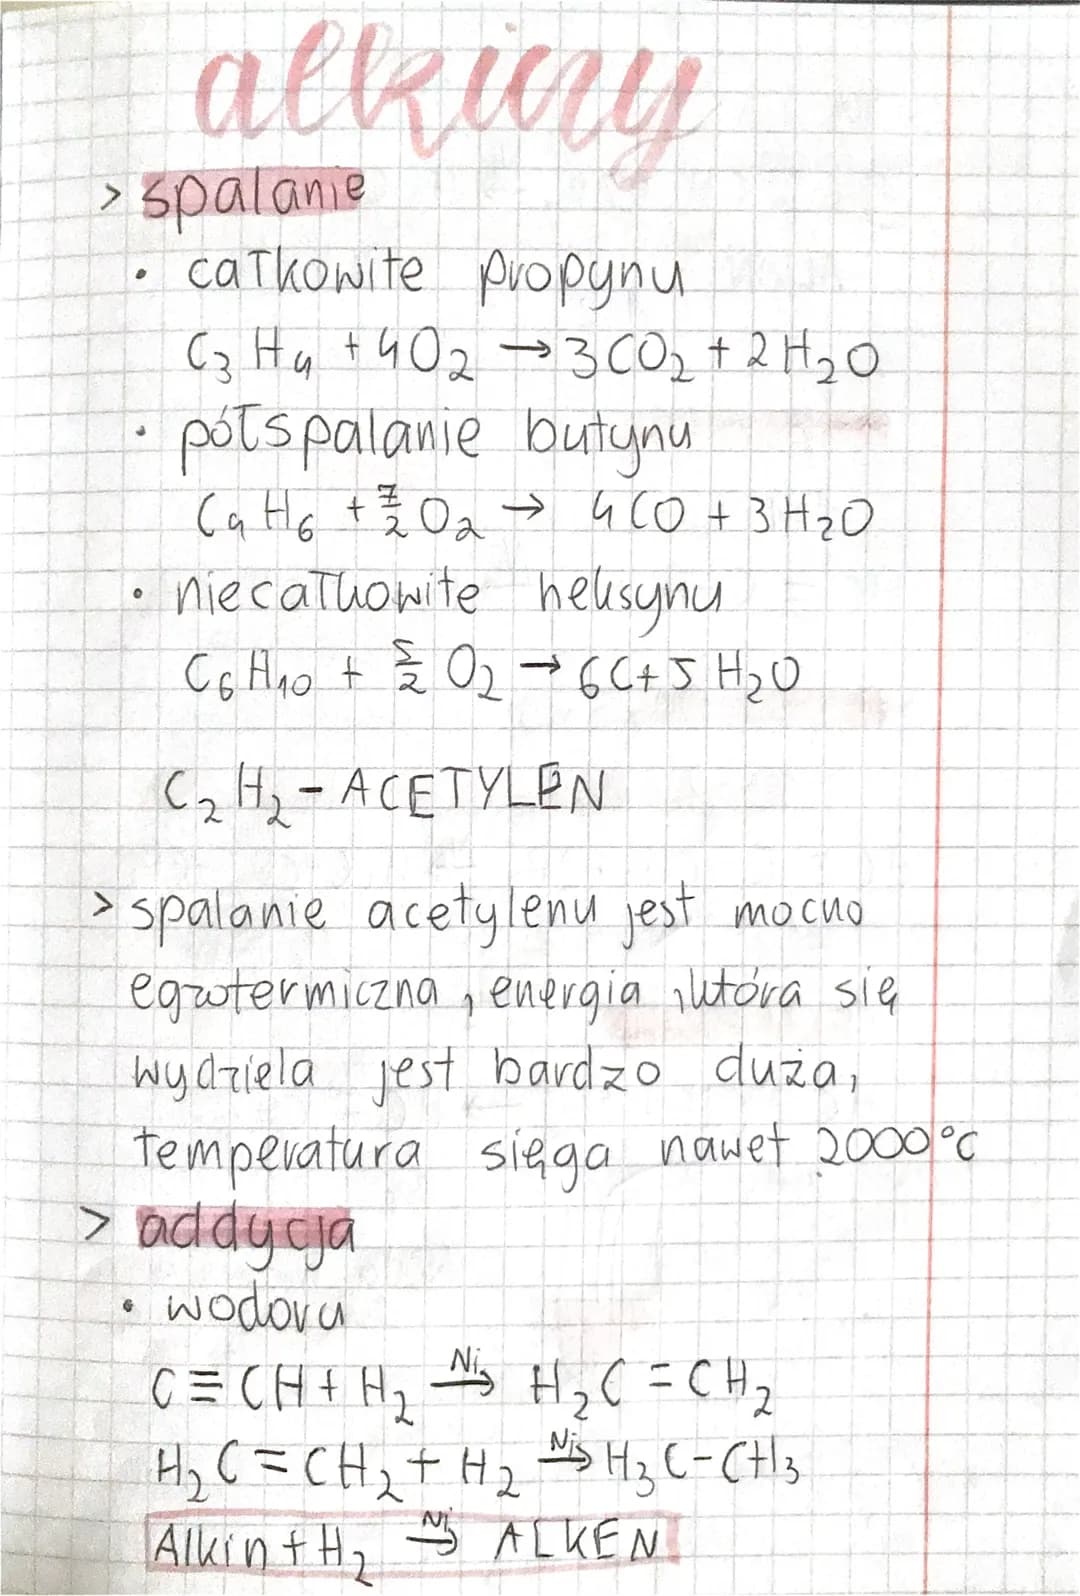 alkiny
> spalanie
• całkowite propynu
C₃H₄ + 4O₂ → 3CO₂ + 2H₂O
• półspalanie butynu
C₄H₆ + 7/2 O₂ → 4CO + 3H₂O
• niecałkowite heksynu
C₆H₁₀ + 5/2 O₂ → 6C + 5H₂O
C₂H₂ - ACETYLEN
> spalanie acetylenu jest mocno
egzotermiczna, energia, która się
wydziela jest bardzo duża,
temperatura sięga nawet 2000°C
> addycja
• wodoru
C≡CH + H₂ →(Ni) H₂C=CH₂
H₂C=CH₂ + H₂ →(Ni) H₃C-CH₃
Alkin + H₂ →(Ni) ALKEN